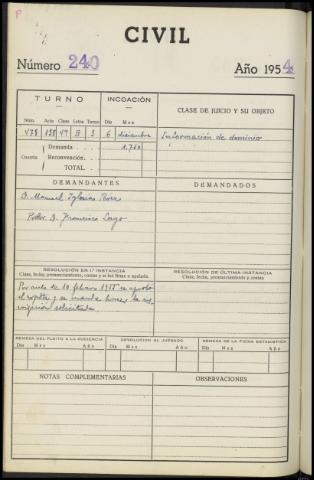 CIVIL
Número 240 Año 1954
TURNO INCOACIÓN CLASE DE JUICIO Y SU OBJETO
Núm. Acto Clase Letra Turno Día Mes
478 158 49 B 3 6 diciembre Información de dominio
Cuantía Demanda 1.760
Reconvención.
TOTAL
DEMANDANTES DEMANDADOS
D. Manuel Iglesias
Pdor. D. Francisco
RESOLUCIÓN EN 1.ª INSTANCIA RESOLUCIÓN DE ÚLTIMA INSTANCIA
Clase, fecha, pronunciamiento, costas y si fué firme o apelada. Clase, fecha, pronunciamiento y costas
Por auto de 10 febrero 1955 se aprobó
el expte y se manda hacer la ins-
cripción solicitada.
REMESA DEL PLEITO A LA AUDIENCIA DEVOLUCIÓN AL JUZGADO REMESA DE LA FICHA ESTADÍSTICA
Día Mes Año Día Mes Año Día Mes Año
NOTAS COMPLEMENTARIAS OBSERVACIONES